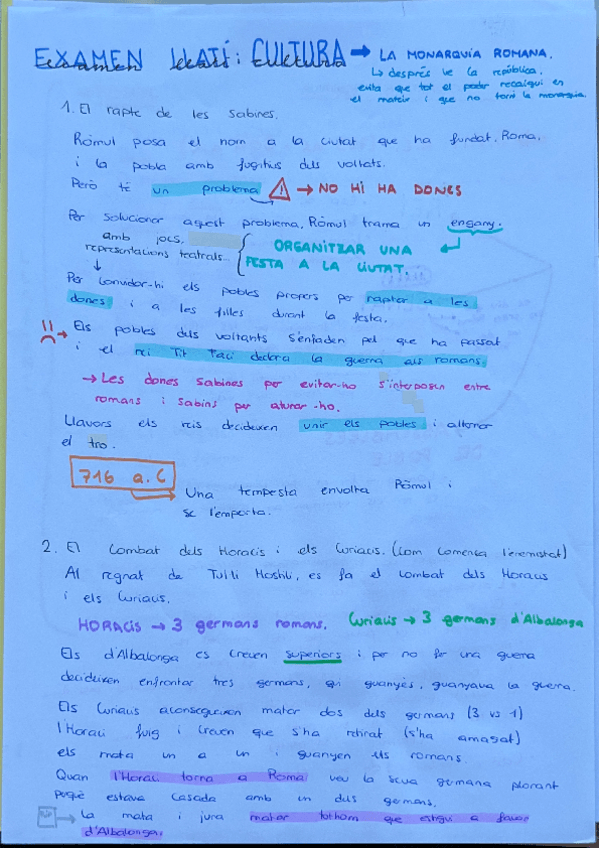 EXAMEN LLATÍ i CULTURA → LA MONARQUIA ROMANA.
↳ després ve la república,
evita que tot el poder recaigui en
el mateix i que no torni la monarquia.
1. El rapte de les sabines.
Ròmul posa el nom a la ciutat que ha fundat, Roma,
i la pobla amb fugitius dels voltants.
Però té un problema ⚠ → NO HI HA DONES
Per solucionar aquest problema, Ròmul trama un engany.
amb jocs,
representacions teatrals...
ORGANITZAR UNA
FESTA A LA CIUTAT.
Per convidar-hi els pobles propers per raptar a les
dones i a les filles durant la festa.
Els pobles dels voltants s'enfaden pel que ha passat
i el rei Tit Taci declara la guerra als romans.
→ Les dones sabines per evitar-ho s'interposen entre
romans i sabins per aturar-ho.
Llavors els reis decideixen unir els pobles i alternar
el tro.
716 a.C
→ Una tempesta envolta Ròmul i
se l'emporta.
2. El Combat dels Horacis i els Curiacis. (Com comença l'enemistat)
Al regnat de Tul·li Hostili, es fa el combat dels Horacis
i els Curiacis.
HORACIS → 3 germans romans. Curiacis → 3 germans d'Albalonga
Els d'Albalonga es creuen superiors i per no fer una guerra
decideixen enfrontar tres germans, qui guanyés, guanyava la guerra.
Els Curiacis aconsegueixen matar dos dels germans (3 vs 1)
l'Horaci fuig i creuen que s'ha retirat (s'ha amagat)
els mata un a un i guanyen els romans.
Quan l'Horaci torna a Roma veu la seua germana plorant
perquè estava casada amb un dels germans.
→ La mata i jura matar tothom que estigui a favor
d'Albalonga.